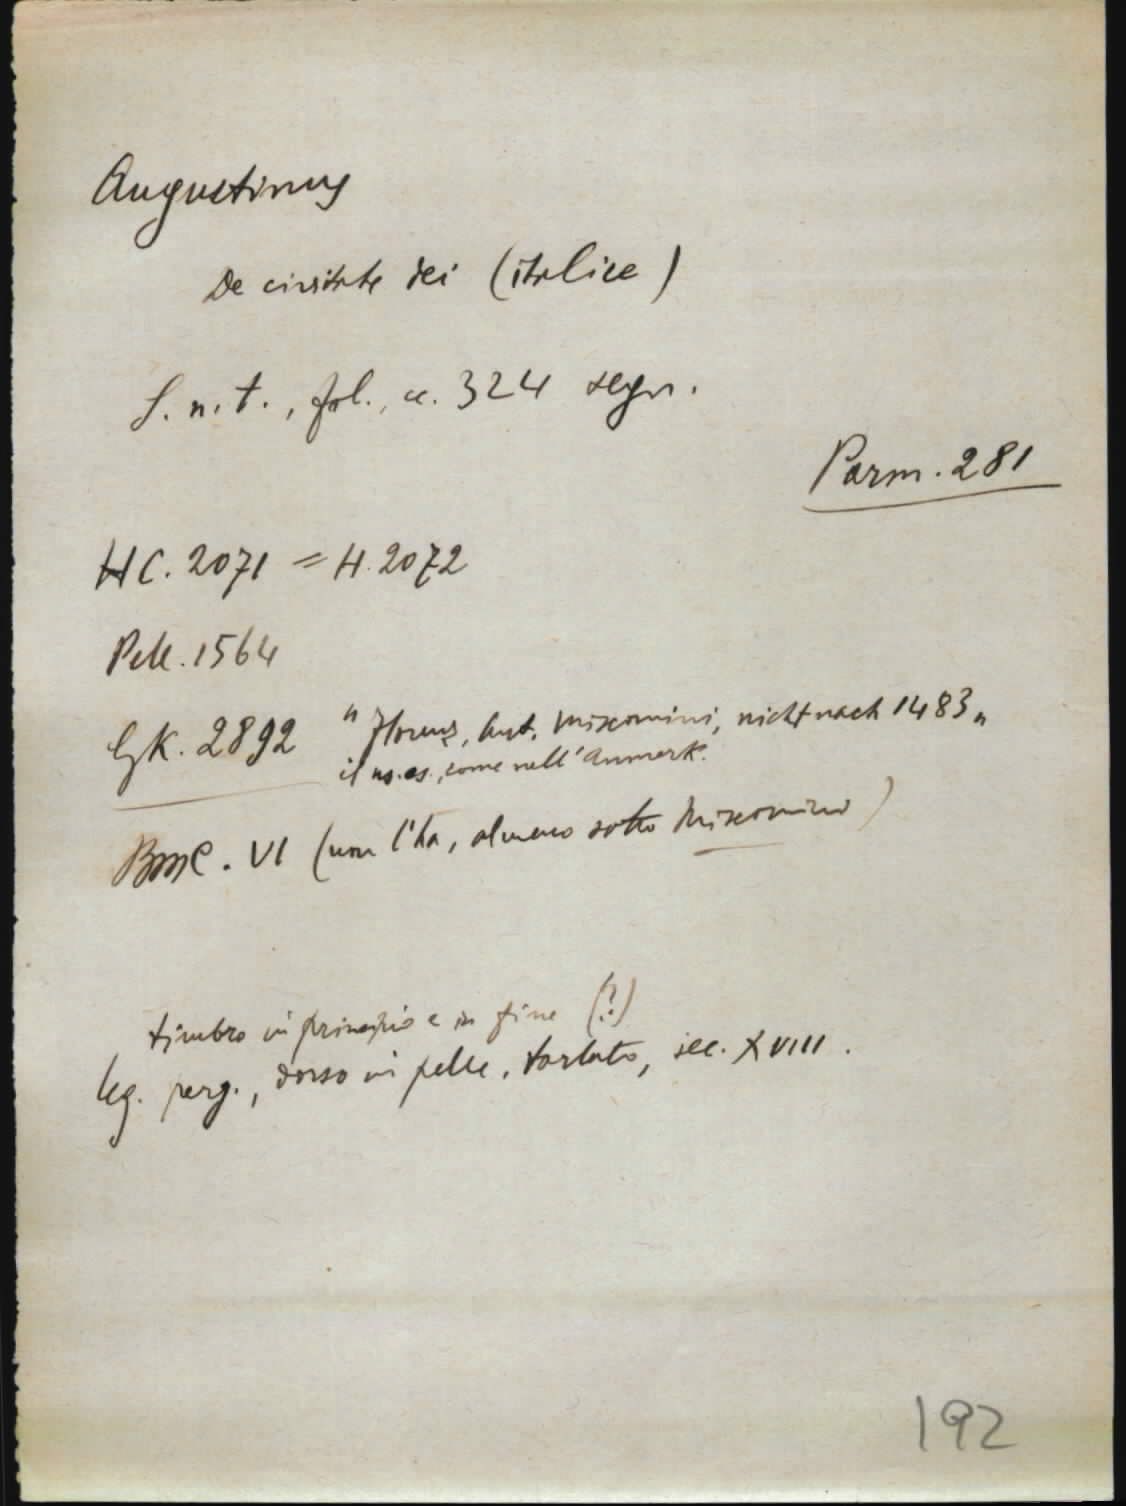 Augustinus
De civitate dei (italice)
S.n.t., fol., cc. 324 segn.
Parm. 281
HC. 2071 = H. 2072
Pell. 1564
GK. 2892 "Florenz, Ant. Miscomini, nicht nach 1483"
il ns. es., come nell'Anmerk.
BMC. VI (non l'ha, almeno sotto Miscomini)
timbro in principio e in fine (?)
leg. perg., dorso in pelle, tarlato, sec. XVIII.
192